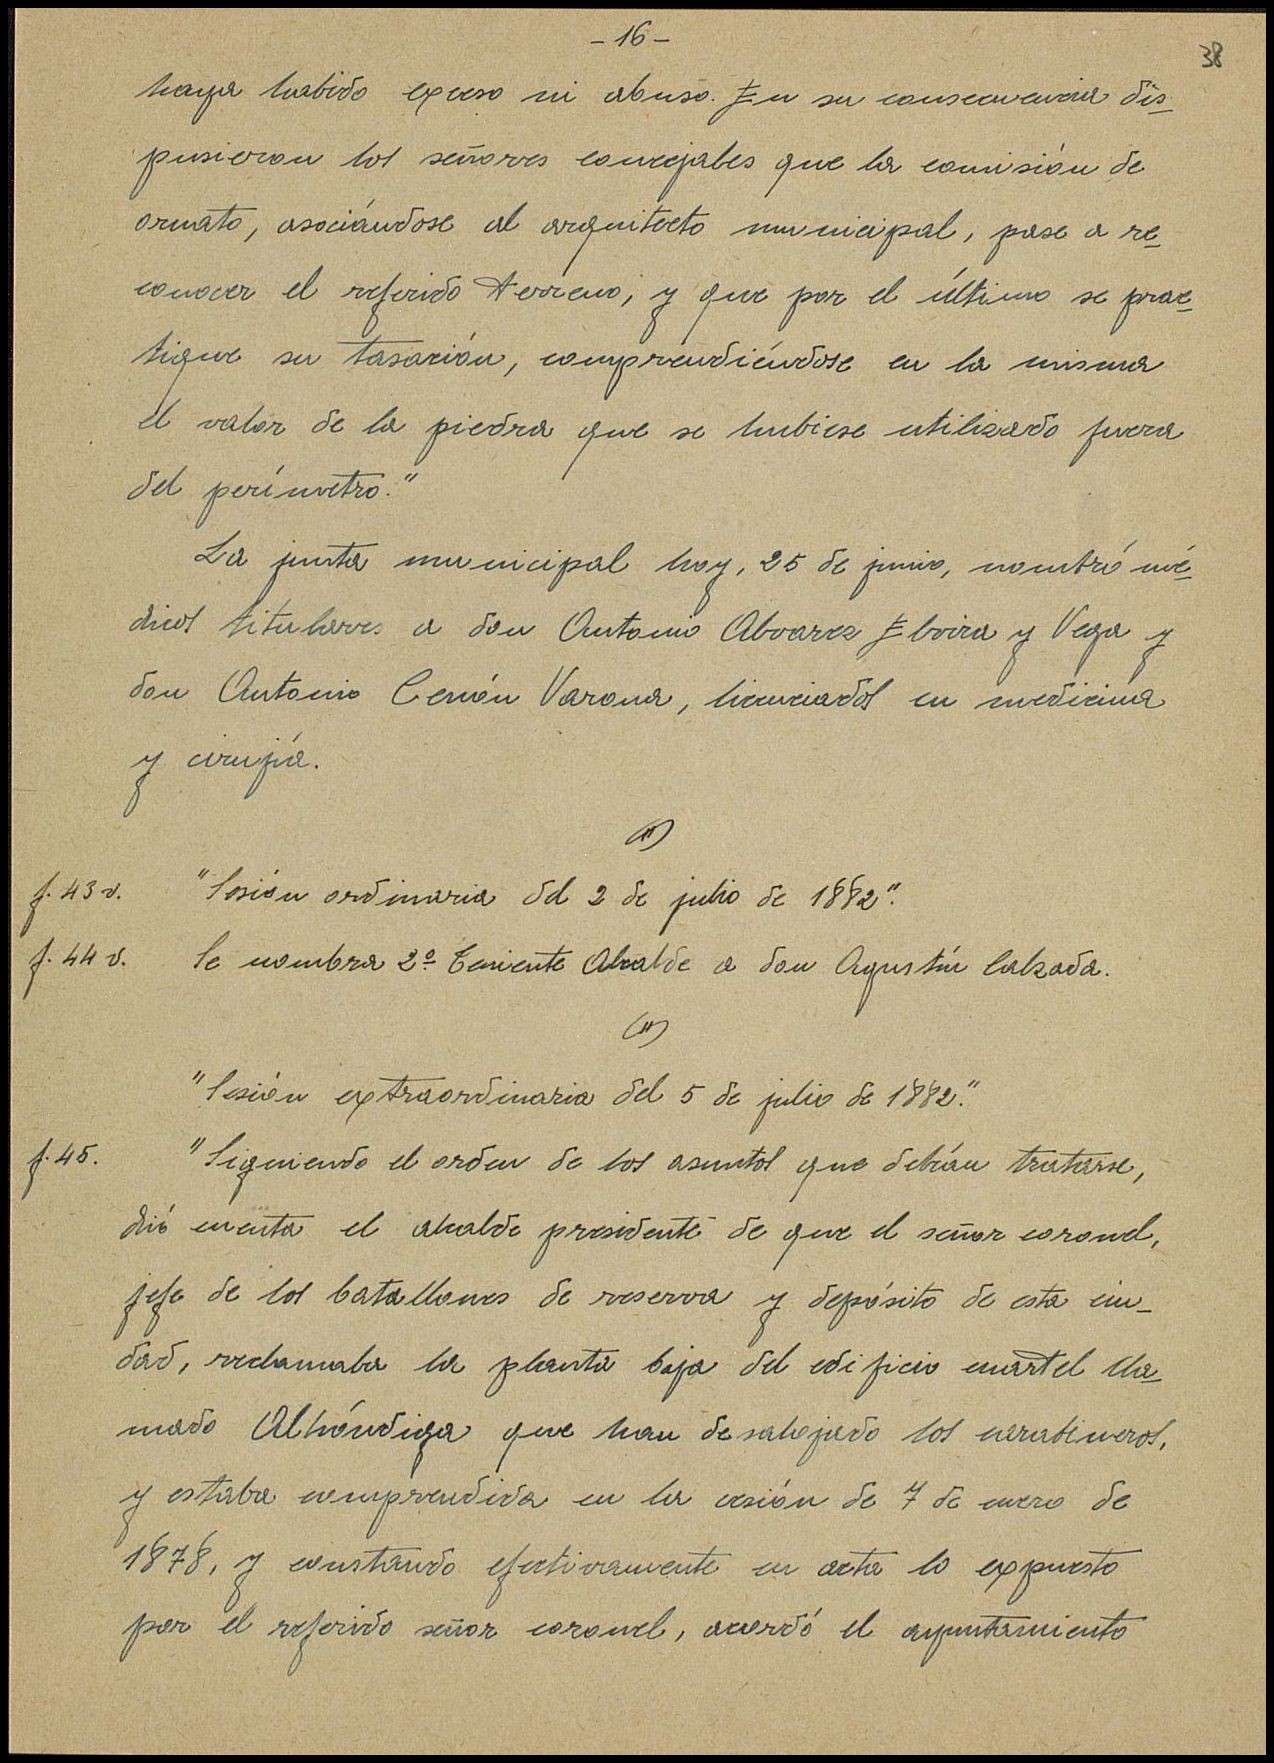 - 16 -
38
haya habido exceso ni abuso. En su consecuencia dis-
pusieron los señores concejales que la comisión de
ornato, asociándose al arquitecto municipal, pase a re-
conocer el referido terreno, y que por el último se prac-
tique su tasación, comprendiéndose en la misma
el valor de la piedra que se hubiese utilizado fuera
del perímetro."
La junta municipal hoy, 25 de junio, nombró mé-
dicos titulares a don Antonio Alvarez Eboira y Vega y
don Antonio Cerión Varona, licenciados en medicina
y cirujía.
(")
f. 43 v. "Sesión ordinaria del 2 de julio de 1882".
f. 44 v. Se nombra 2º Teniente Alcalde a don Agustín Calzada.
(")
"Sesión extraordinaria del 5 de julio de 1882."
f. 45. "Siguiendo el orden de los asuntos que debían tratarse,
dió cuenta el alcalde presidente de que el señor coronel,
jefe de los batallones de reserva y depósito de esta ciu-
dad, reclamaba la planta baja del edificio cuartel lla-
mado Alhóndiga que han desalojado los carabineros,
y estaba comprendida en la cesión de 7 de enero de
1878, y constando efectivamente en acta lo expuesto
por el referido señor coronel, acordó el ayuntamiento